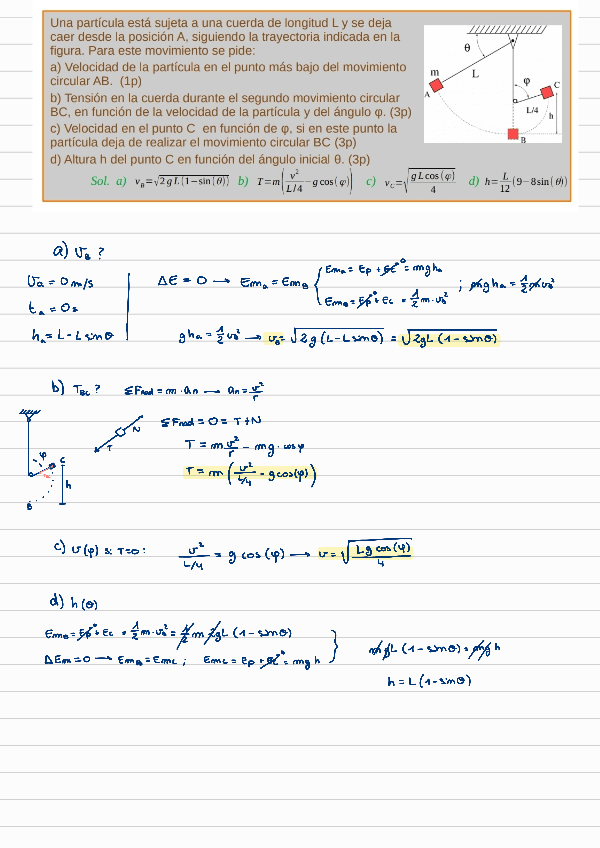 Una partícula está sujeta a una cuerda de longitud L y se deja
caer desde la posición A, siguiendo la trayectoria indicada en la
figura. Para este movimiento se pide:
a) Velocidad de la partícula en el punto más bajo del movimiento
circular AB. (1p)
b) Tensión en la cuerda durante el segundo movimiento circular
BC, en función de la velocidad de la partícula y del ángulo φ. (3p)
c) Velocidad en el punto C en función de φ, si en este punto la
partícula deja de realizar el movimiento circular BC (3p)
d) Altura h del punto C en función del ángulo inicial θ. (3p)
Sol. a) v_B=√(2 g L (1−sin(θ))) b) T=m(v²/(L/4) −g cos(φ)) c) v_C=√(g L cos(φ)/4) d) h=L/12 (9−8sin(θ))
θ
m
L
A
φ
C
L/4
h
B
a) v_B ?
v_a = 0 m/s
t_a = 0 s
h_a = L - L sinθ
ΔE = 0 → Em_A = Em_B
Em_A = Ep + Ec⁰ = mgh_a
Em_B = Ep⁰ + Ec = 1/2 m·v_B²
; mgh_a = 1/2 m v_B²
gh_a = 1/2 v_B² → v_B = √(2g(L-L sinθ)) = √(2gL(1-sinθ))
b) T_BC ? ΣFrad = m·an → an = v²/r
φ
C
h
B
N
T
ΣFrad = 0 = T+N
T = m v²/r - mg·cosφ
T = m(v²/(L/4) - g cos(φ))
c) v(φ) si T=0: v²/(L/4) = g cos(φ) → v = √(L g cos(φ)/4)
d) h(θ)
Em_B = Ep⁰ + Ec = 1/2 m·v_B² = 1/2 m 2gL(1-sinθ)
ΔEm = 0 → Em_B = Em_C ; Em_C = Ep + Ec⁰ = mgh
mgL(1-sinθ) = mgh
h = L(1-sinθ)